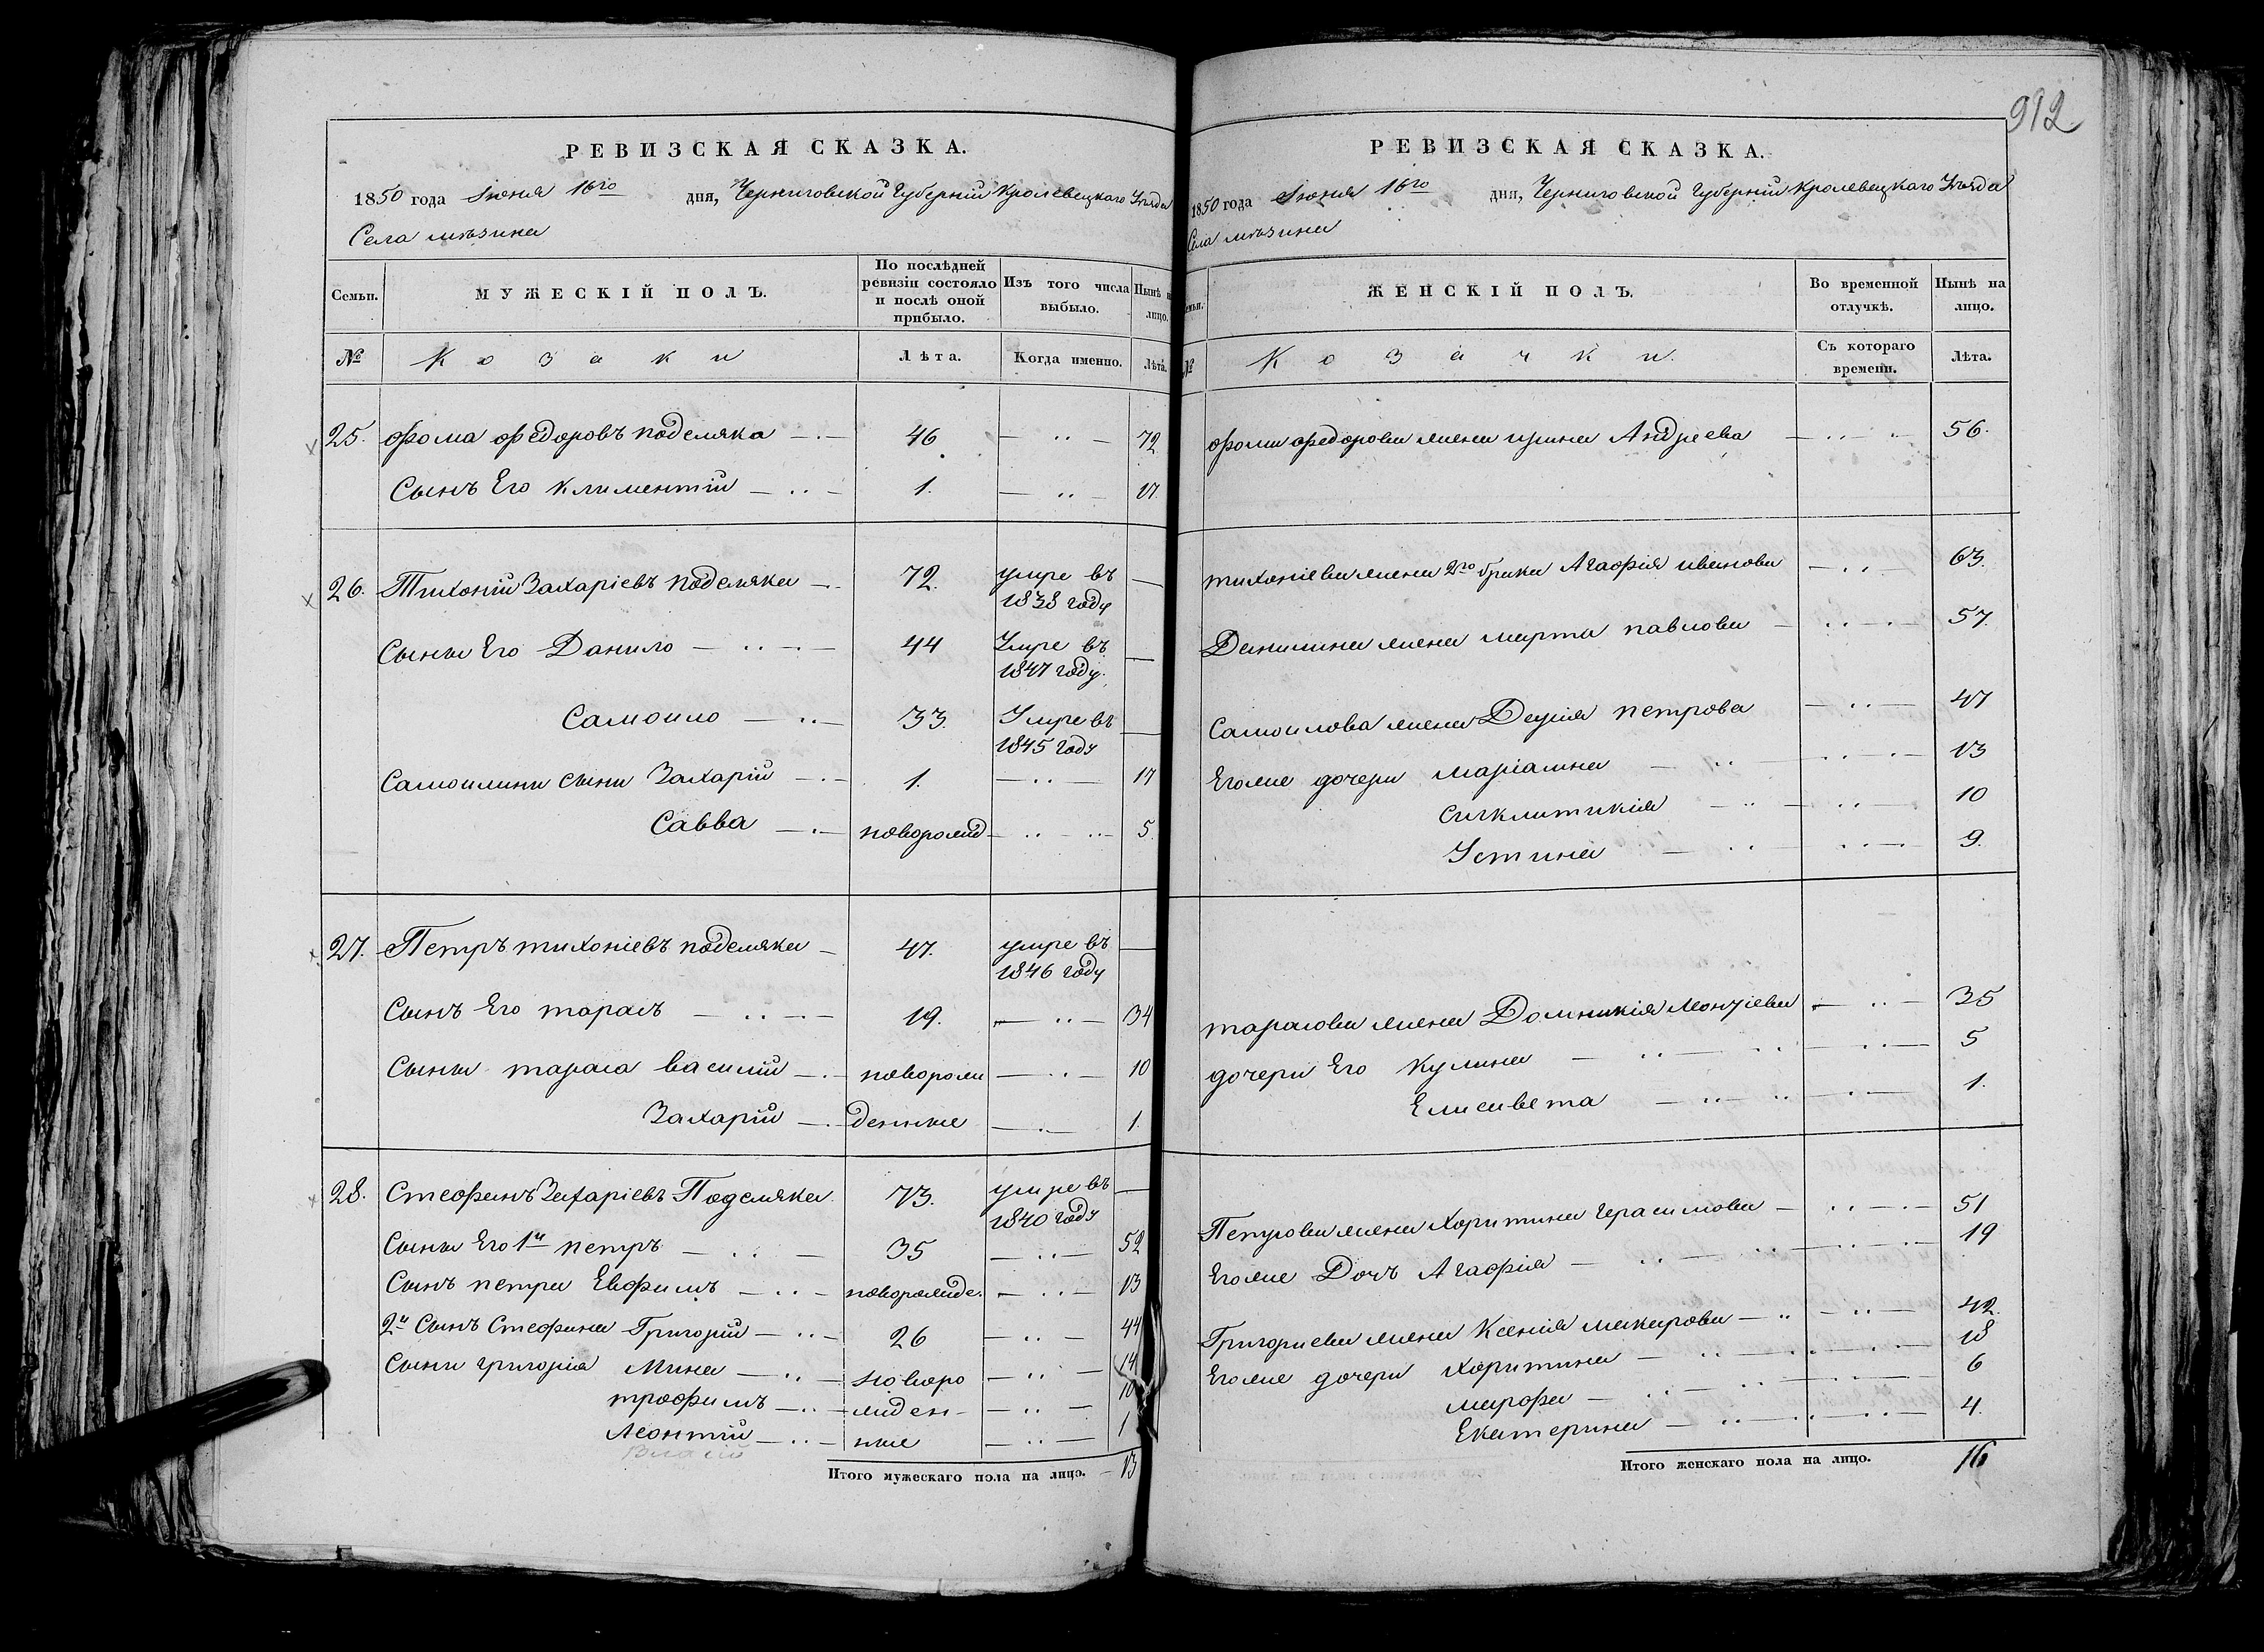 912
РЕВИЗСКАЯ СКАЗКА.
1850 года Июня 16го дня, Черниговской Губерніи Кролевецкаго Уѣзда
Села мѣзина
Семьи. МУЖЕСКІЙ ПОЛЪ. По послѣдней ревизіи состояло и послѣ оной прибыло. Изъ того числа выбыло. Нынѣ н лицо.
№ Козаки Лѣта. Когда именно. Лѣта.
25. фома федоровъ подсмяка 46 72
Сынъ Его климентій 1. 17
26. Тихоній Захаріевъ подсмяка 72. умре въ 1838 году
Сыны Его Данило 44 Умре въ 1847 году.
Самоило 33. Умре въ 1845 году
Самоилини сыни Захарій 1. 17
Савва новорожд 5.
27. Петръ тихоніевъ подсмяка 47. умре въ 1846 году
Сынъ Его тарасъ 19. 34
Сыны тараса василій новорож 10
Захарій денные 1.
28. Стефанъ Захаріевъ Подсмяка 73. умре въ 1840 году
Сыны Его 1й петръ 35 52
Сынъ петра Евфимъ новорожде. 13
2й Сынъ Стефана Григорій 26 44
Сыни григорія Мина новоро 14
трофимъ жден- 10
Леонтій ные 1
Власій
Итого мужескаго пола на лицо. 13
РЕВИЗСКАЯ СКАЗКА.
1850 года Июня 16го дня, Черниговской Губерніи Кролевецкаго Уѣзда
Села мѣзина
емьи. ЖЕНСКІЙ ПОЛЪ. Во временной отлучкѣ. Нынѣ на лицо.
№ Козачки. Съ котораго времени. Лѣта.
фоми федорова жена ирина Андреева 56.
тихоніева жена 2го брака Агафія иванова 63.
Данилина жена марта павлова 57.
Самоилова жена петрова 47
Егоже дочери маріамна 13
сигклитикія 10
Устина 9.
тарасова жена Домникія 35
дочери Его Кулина 5
Елисавета 1.
Петрова жена Харитина герасимова 51
Егоже Дочь Агафія 19
Григориева жена Ксенія макарова 42.
Егоже дочери Харитина 18
марфа 6
Екатерина 4.
Итого женскаго пола на лицо. 16